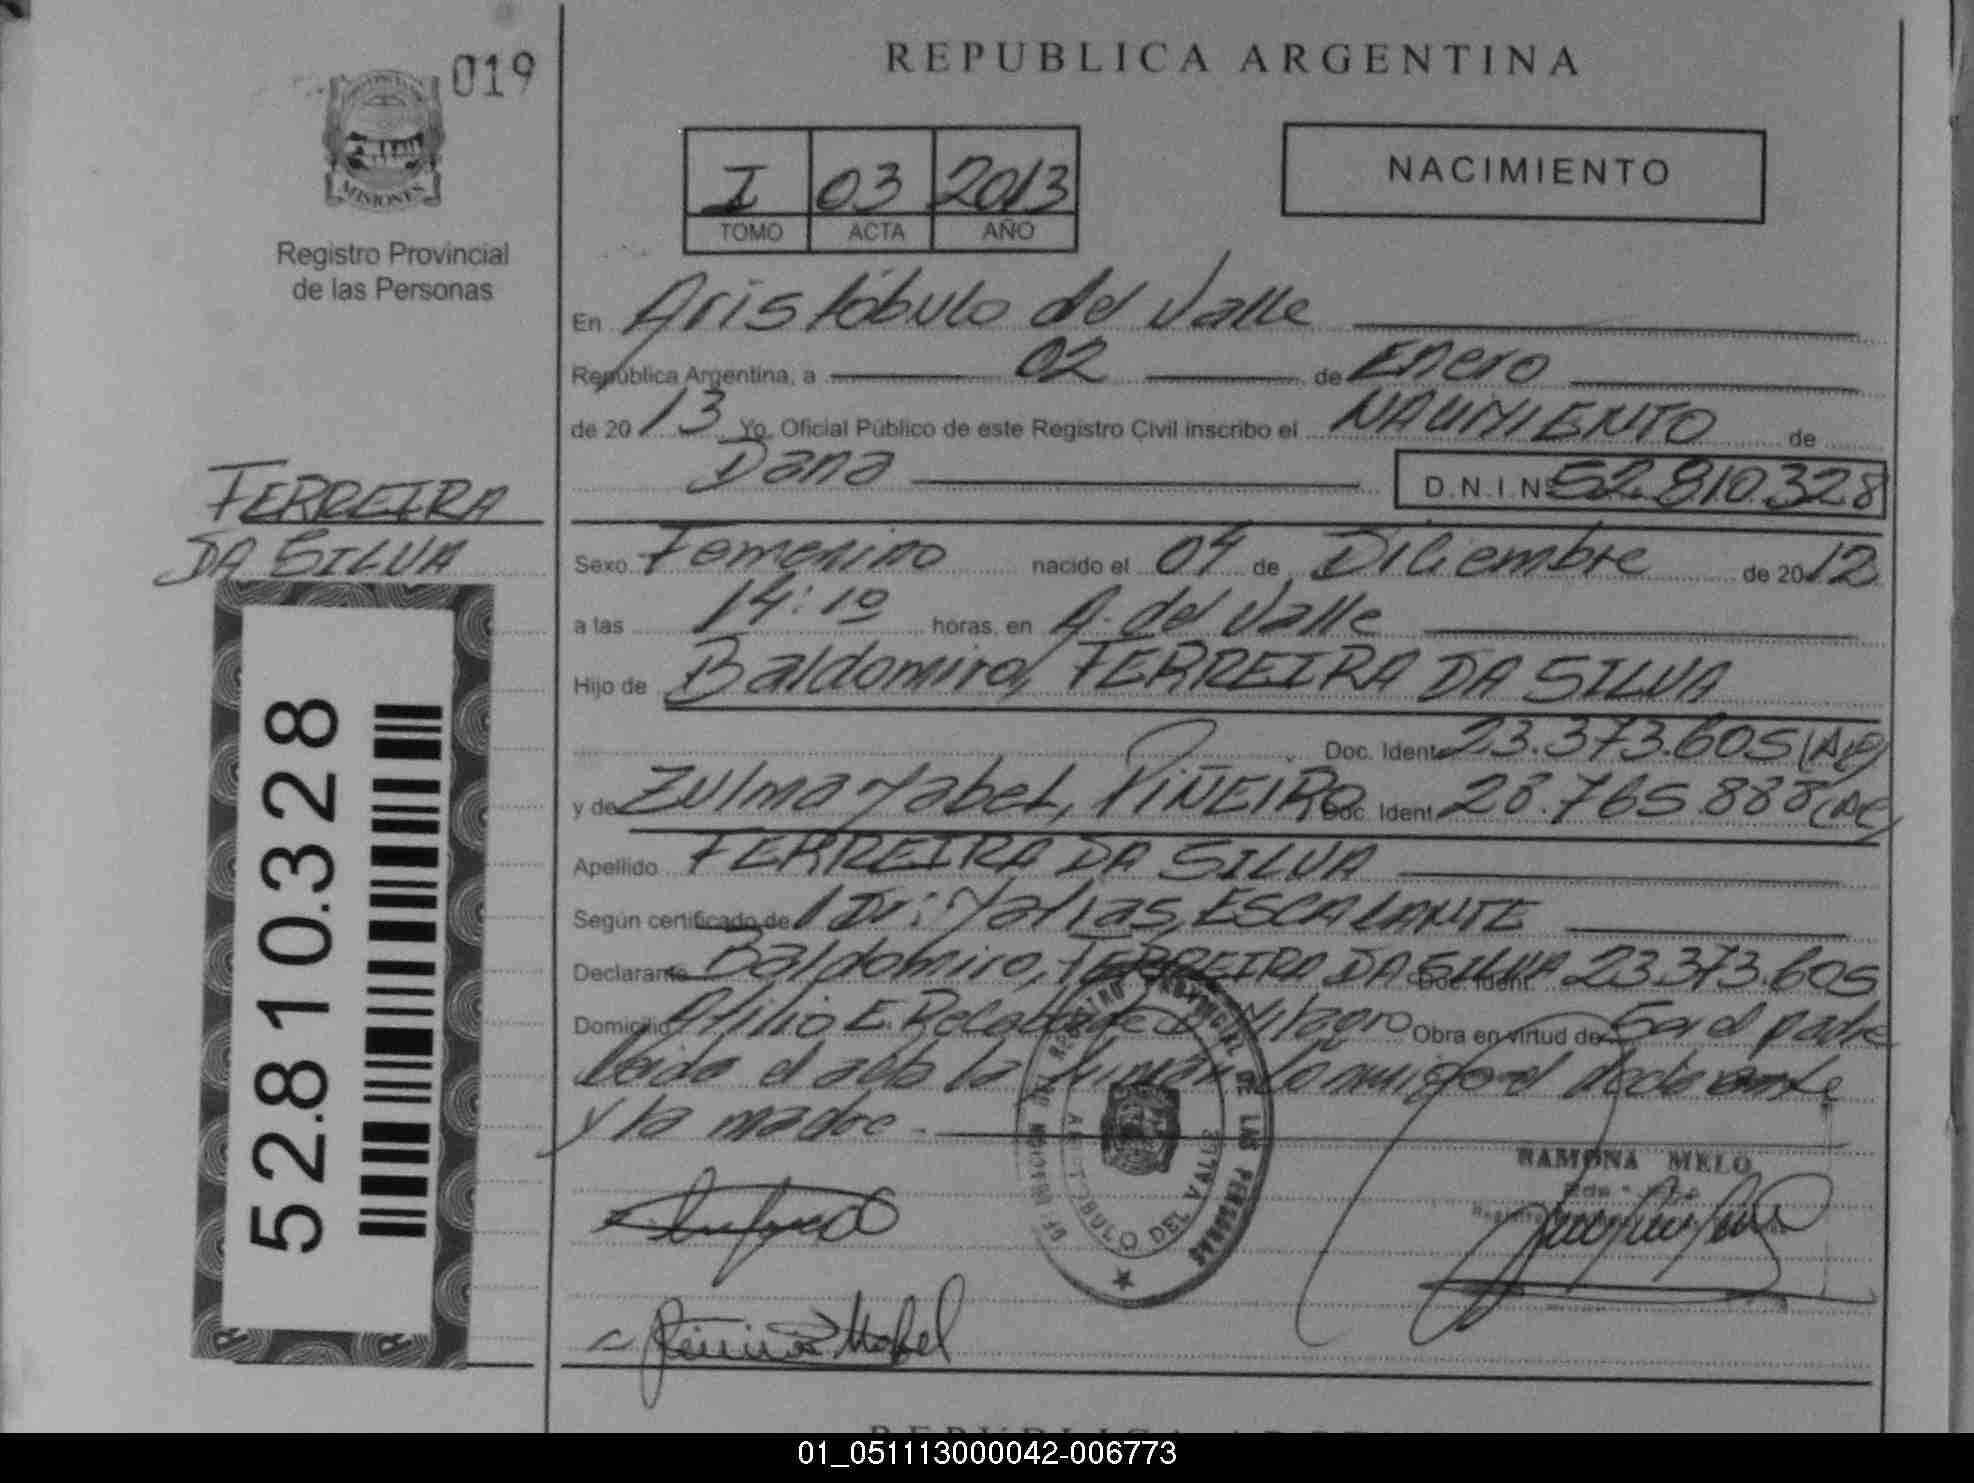 019
MISIONES
Registro Provincial
de las Personas
FERREIRA
DA SILVA
52.810.328
REPUBLICA ARGENTINA
I 03 2013
TOMO ACTA AÑO
NACIMIENTO
En Aristóbulo del Valle
República Argentina, a 02 de Enero
de 2013 Yo, Oficial Público de este Registro Civil inscribo el NACIMIENTO de
Dana D.N.I.Nº 52.810.328
Sexo Femenino nacido el 04 de Diciembre de 2012
a las 14:10 horas, en A. del Valle
Hijo de Baldomiro, FERREIRA DA SILVA
Doc. Ident. 23.373.605 (Ar)
y de Zulma Mabel, PIÑEIRO Doc. Ident. 28.765.888 (Ar)
Apellido FERREIRA DA SILVA
Según certificado de Dr: Matias, ESCALANTE
Declarante Baldomiro, FERREIRA DA SILVA Doc. Ident. 23.373.605
Domicilio Atilio E. Milagro Obra en virtud de Ser el padre
Leida el acta la firman conmigo el declarante
y la madre.
REGISTRO PROVINCIAL DE LAS PERSONAS
ARISTOBULO DEL VALLE
RAMONA MELO
Piñeiro Mabel
01_051113000042-006773